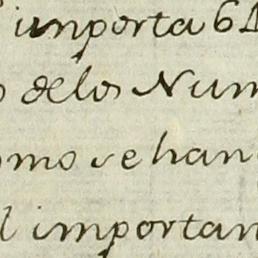 importa 61
delos Num
omo se han
l importan